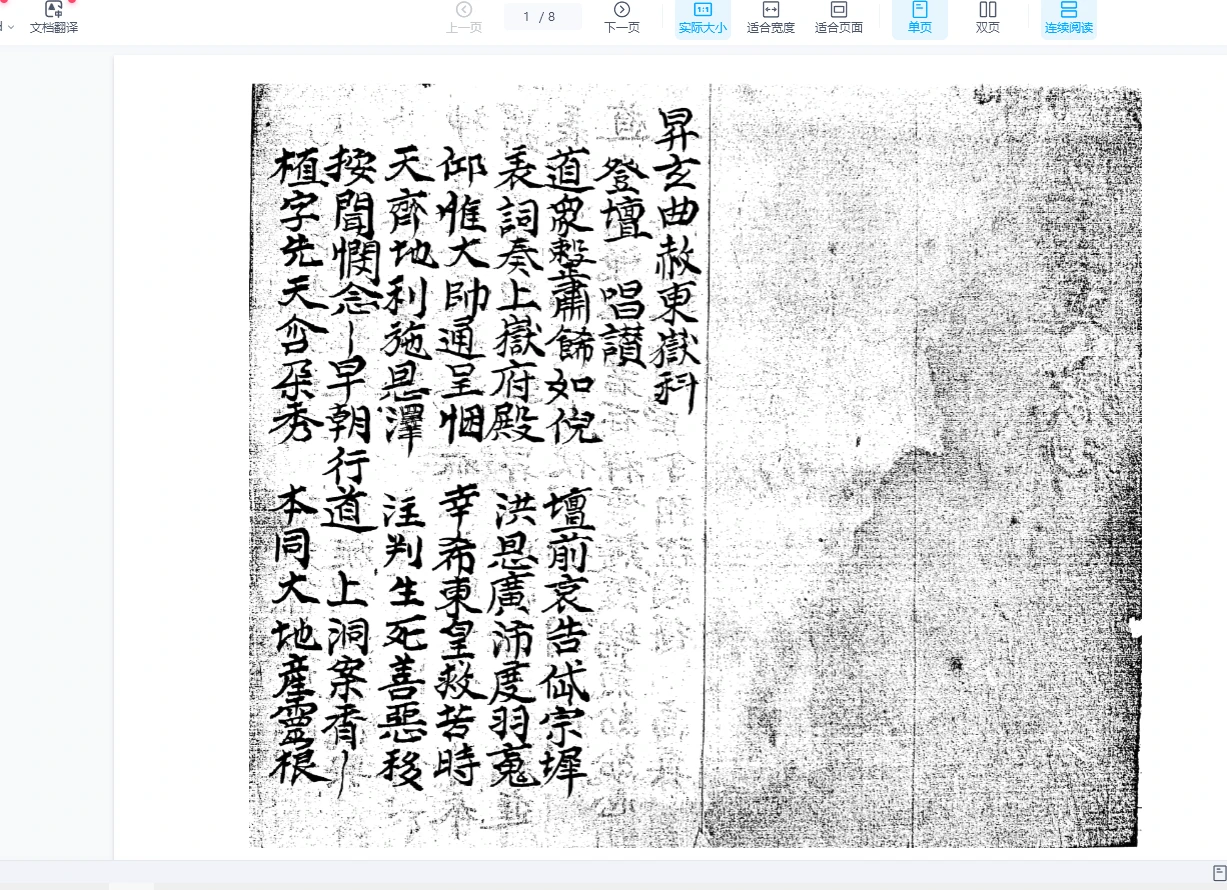 文档翻译
上一页
1 / 8
下一页
实际大小
适合宽度
适合页面
单页
双页
连续阅读
昇玄曲赦東嶽科
登壇 唱讃
道衆整肅餙如倪 壇前哀告岱宗墀
表詞奏上嶽府殿 洪恩廣沛度羽䰟
仰惟大帥通呈悃 幸希東皇救苦時
天齊地利施恩澤 注判生死善惡移
按聞憫念 早朝行道 上洞案香
植字先天含朶秀 本同大地產靈根